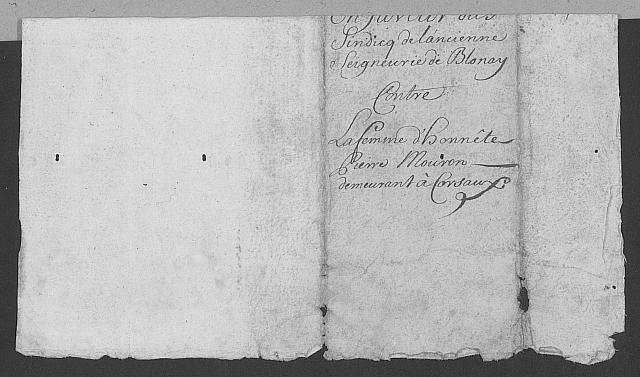 En faveur du S
Sindicq de l'ancienne
Seigneurie de Blonay
Contre
La femme d'honnête
Pierre Mouron
demeurant à Corsaux